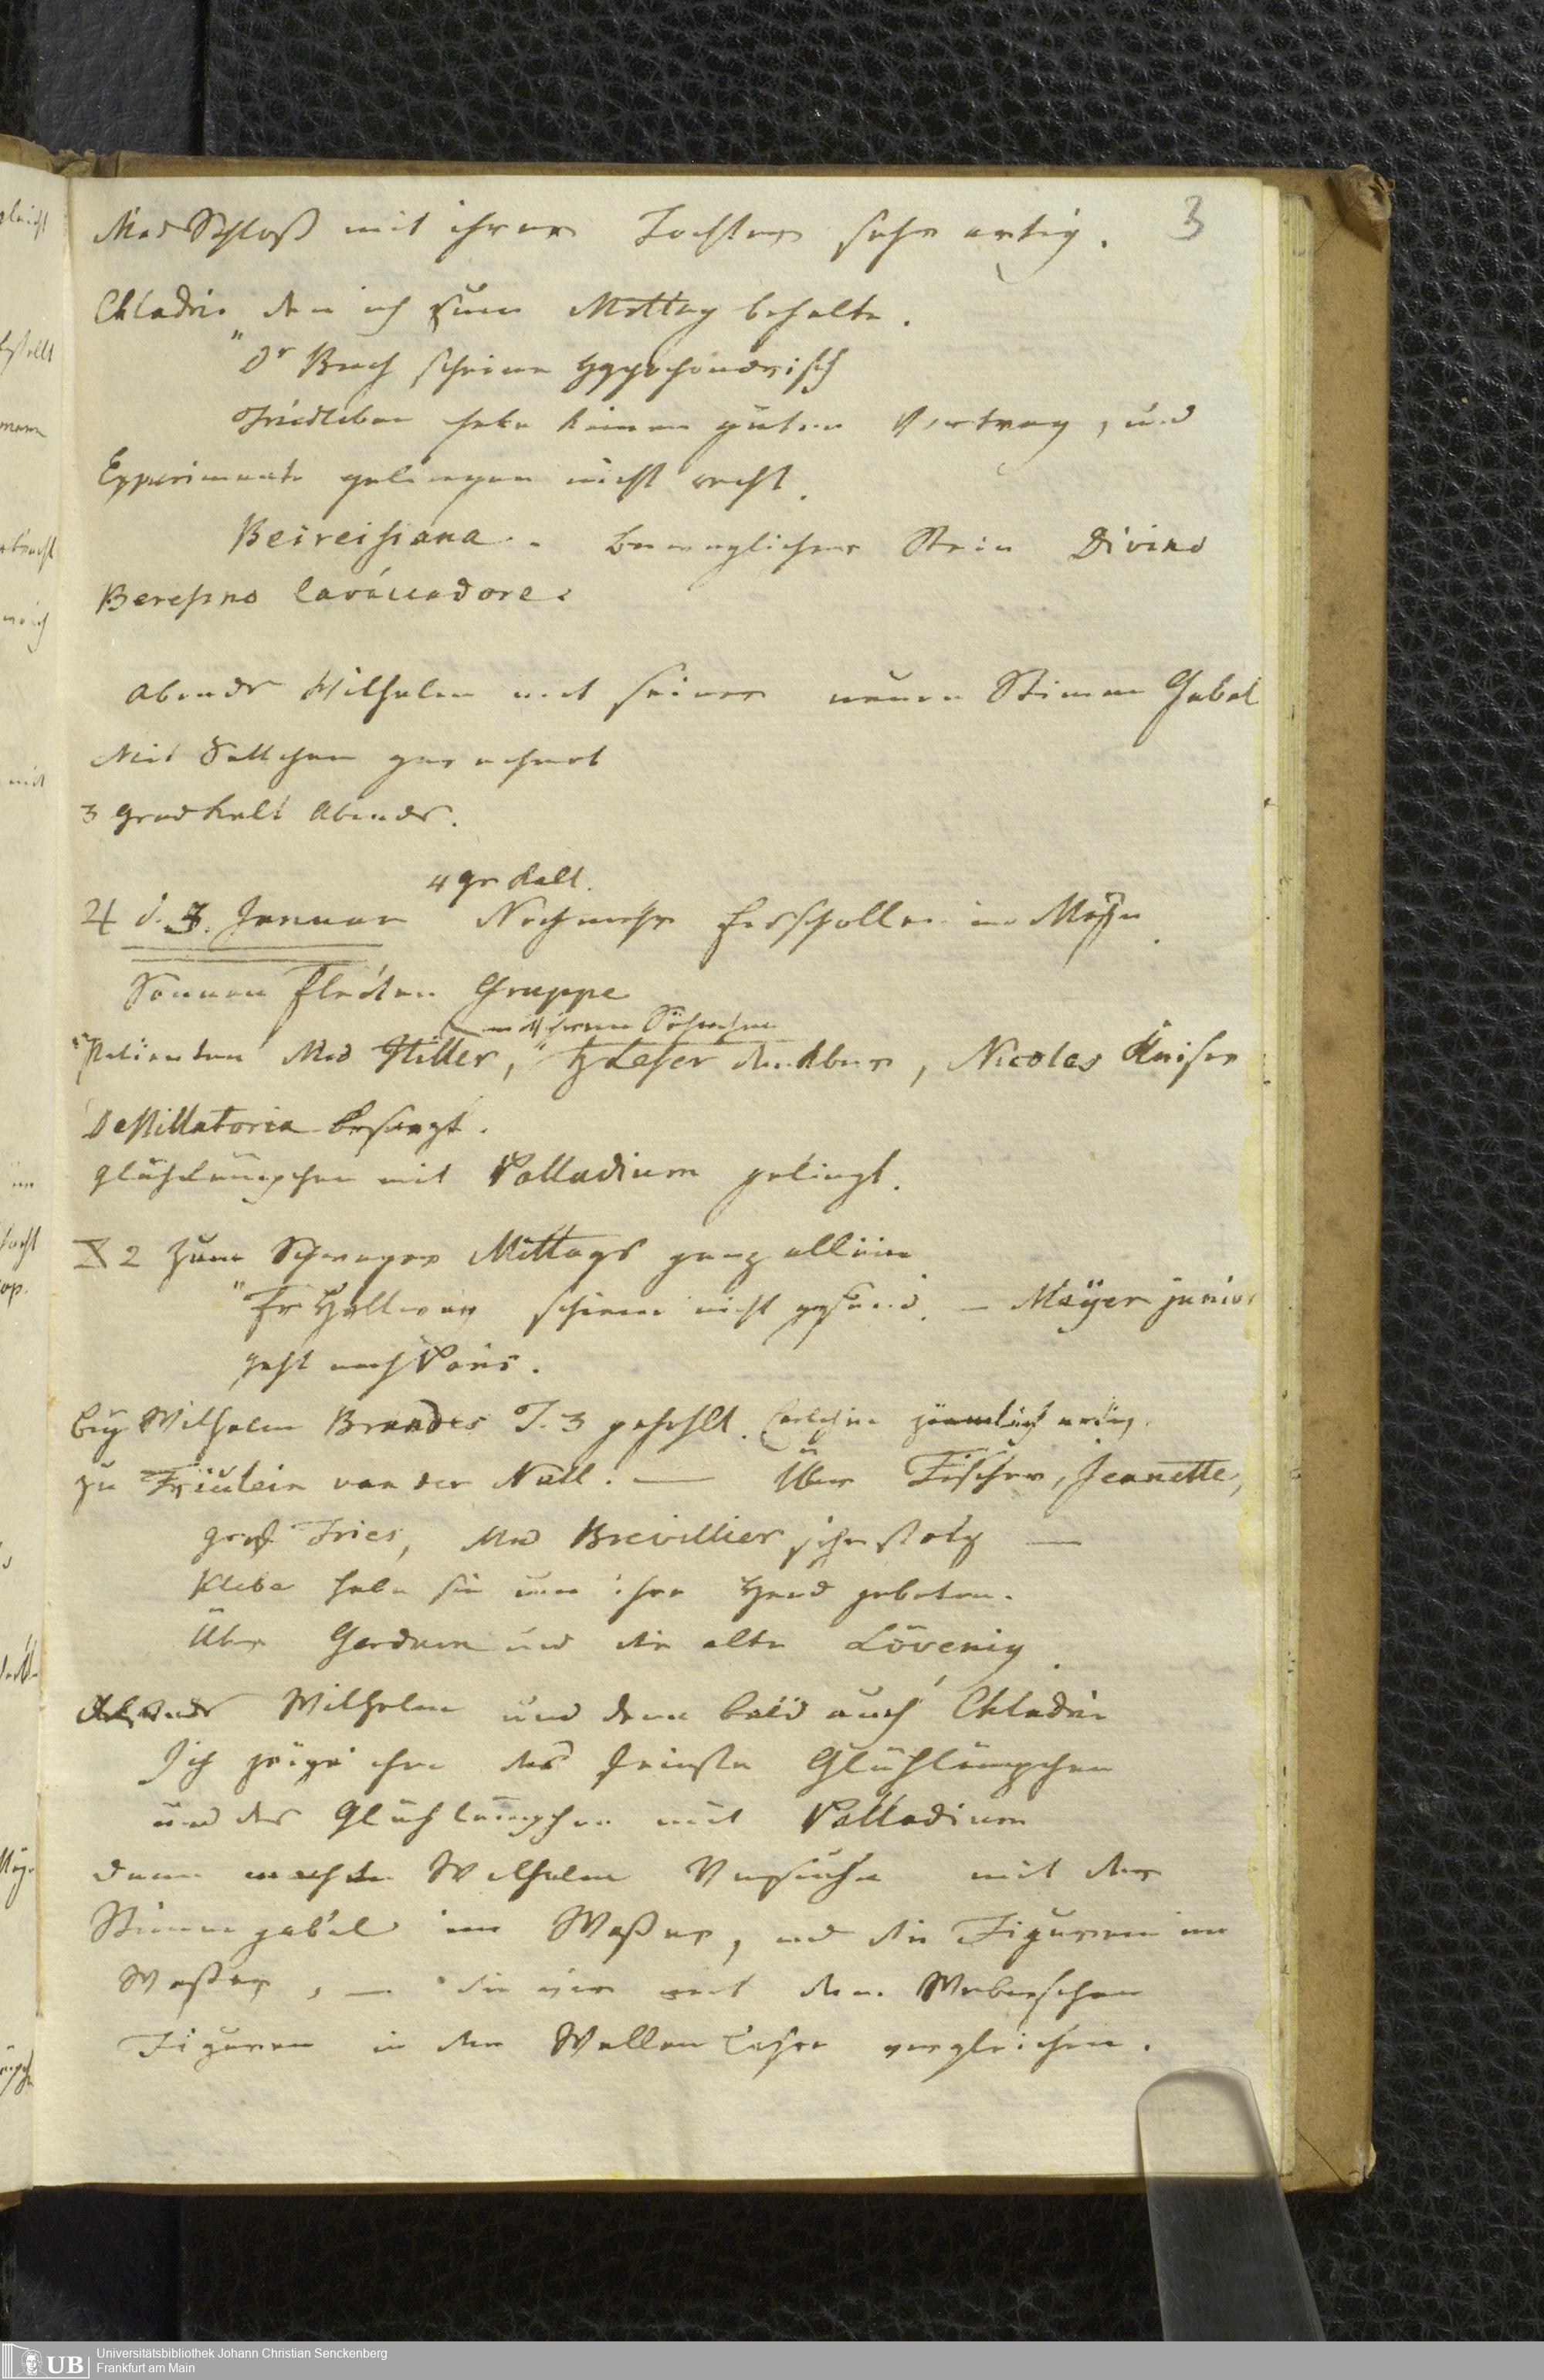 3
Mad Schloß mit ihrer Tochter sehr artig.
Chladni den ich zum Mittag behalte.
"Dr Buch scheine Hypochondrisch
Friedleben habe keinen guten Vortrag, und
Experimente gelingen nicht recht.
Beireisiana. beweglicher Stein Divino
Abends Wilhelm mit seiner neuen Stimm Gabel
Mit
3 Grad kalt Abends.
4 gr kalt.
♃ d. 3. Januar Nachmehr Eisschollen im Mayn
Sonnen Flecken Gruppe
mit ihrem Söhnchen
Patienten Mad Hiller, H Leser, Nicolas Kaiser
Destillatoria besorgt.
Glühlämpchen mit Palladium gelingt.
2 zum Schwager Mittags ganz allein
"Fr Hollweg scheine nicht gesund. – Mayer junior
geht nach Paris.
bey Wilhelm Brandes T. 3 gefehlt. ziemlich artig.
zu Fräulein van der Nüll. — Über Fischer, Jeanette,
Graf Fries, Mad Brevillier sehr stolz —
habe sie um ihre Hand gebeten.
Über und die alte Lövenig.
Abends Wilhelm und dann bald auch Chladni
Ich zeige ihm das feinste Glühlämpchen
und das Glühlämpchen mit Palladium
dann machte Wilhelm Versuche mit der
Stimmgabel im Waßer, und die Figuren im
Waßer, — die wir mit den Weberschen
Figuren in der Wellenlehre vergleichen.
UB Universitätsbibliothek Johann Christian Senckenberg
Frankfurt am Main